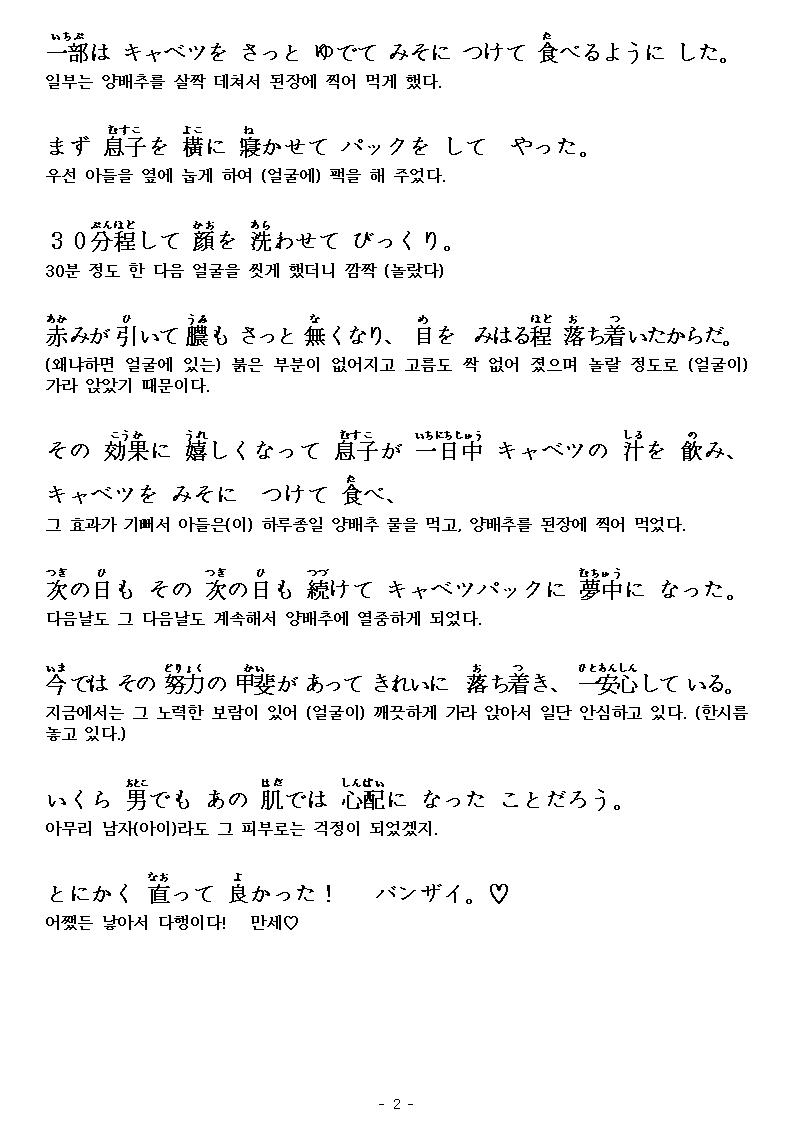 いちぶ た
一部は キャベツを さっと ゆでて みそに つけて 食べるように した。
일부는 양배추를 살짝 데쳐서 된장에 찍어 먹게 했다.
むすこ よこ ね
まず 息子を 横に 寝かせて パックを して やった。
우선 아들을 옆에 눕게 하여 (얼굴에) 팩을 해 주었다.
ぷんほど かお あら
３０分程して 顔を 洗わせて びっくり。
30분 정도 한 다음 얼굴을 씻게 했더니 깜짝 (놀랐다)
あか ひ うみ な め ほど お つ
赤みが 引いて 膿も さっと 無くなり、 目を みはる程 落ち着いたからだ。
(왜냐하면 얼굴에 있는) 붉은 부분이 없어지고 고름도 싹 없어 졌으며 놀랄 정도로 (얼굴이)
가라 앉았기 때문이다.
こうか うれ むすこ いちにちじゅう しる の
その 効果に 嬉しくなって 息子が 一日中 キャベツの 汁を 飲み、
た
キャベツを みそに つけて 食べ、
그 효과가 기뻐서 아들은(이) 하루종일 양배추 물을 먹고, 양배추를 된장에 찍어 먹었다.
つぎ ひ つぎ ひ つづ むちゅう
次の日も その 次の日も 続けて キャベツパックに 夢中に なった。
다음날도 그 다음날도 계속해서 양배추에 열중하게 되었다.
いま どりょく かい お つ ひとあんしん
今では その 努力の 甲斐が あって きれいに 落ち着き、 一安心して いる。
지금에서는 그 노력한 보람이 있어 (얼굴이) 깨끗하게 가라 앉아서 일단 안심하고 있다. (한시름
놓고 있다.)
おとこ はだ しんぱい
いくら 男でも あの 肌では 心配に なった ことだろう。
아무리 남자(아이)라도 그 피부로는 걱정이 되었겠지.
なお よ
とにかく 直って 良かった！ バンザイ。♡
어쨌든 낳아서 다행이다! 만세♡
- 2 -